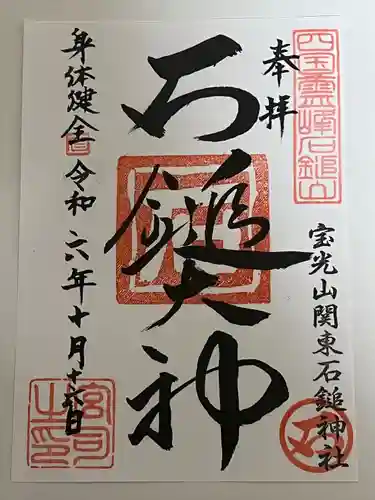 四国霊峰石鎚山
奉拝
宝光山関東石鎚神社
石鎚大神
身体健全
令和六年十月十六日
宮司之印